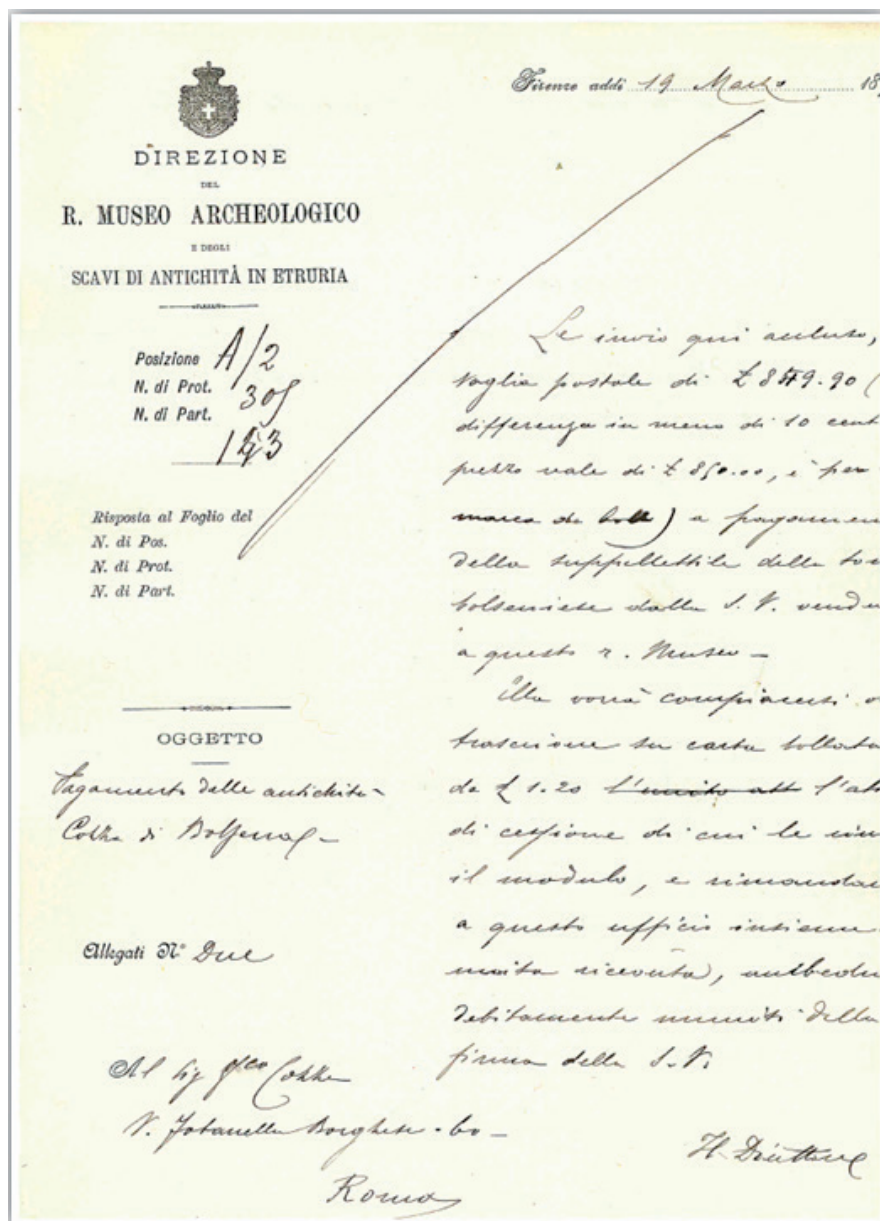 Firenze addì 19 Marzo 18
DIREZIONE
DEL
R. MUSEO ARCHEOLOGICO
E DEGLI
SCAVI DI ANTICHITÀ IN ETRURIA
Posizione A/2
N. di Prot. 305
N. di Part.
Risposta al Foglio del
N. di Pos.
N. di Prot.
N. di Part.
OGGETTO
Pagamento delle antichità
di
Allegati N° Due
Al Sig
V. Fotanella Borghese
Roma
Le invio qui accluso,
vaglia postale di £ 849.90 (
differenza in meno di 10 cent
prezzo vale di £ 850.00, è per
marca da bollo) a pagamen
della suppellettile della tom
bolseniese dalla S. V. vendu
a questo r. Museo -
Ella vorrà compiacersi
su carta bollata
da £ 1.20 l'att
di cessione di cui le
il modulo, e rimandar
a questo ufficio insieme
unita ricevuta,
debitamente muniti della
firma della S. V.
Il Direttore